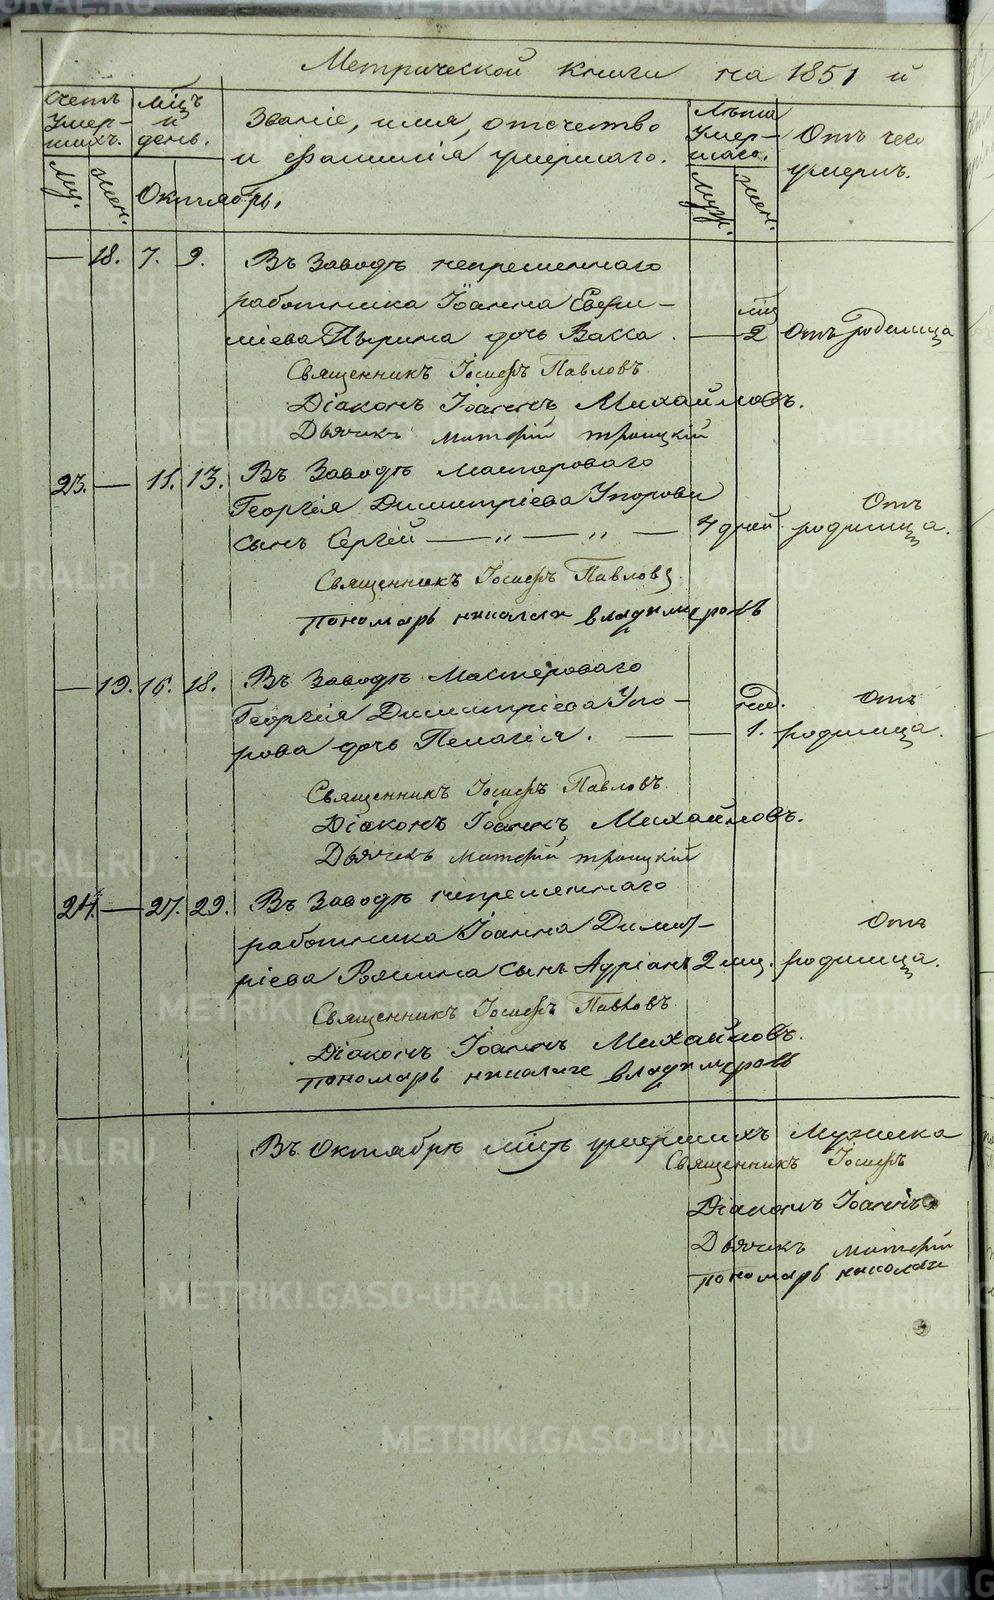 Метрической книги на 1851 й
Счетъ умер-шихъ.
Мцъ и день.
Званіе, имя, отечество и фамилія умершаго.
Лѣта умер-шаго.
Отъ чего умеръ.
Му. Жен.
Октябрь.
Муж. Жен.
— 18. 7. 9. Въ Заводѣ непременнаго
работника Іоанна
Пырина дочь Васса. — мцъ 2 Отъ родимца
Священникъ Іосифъ Павловъ
Діаконъ Іоаннъ Михайловъ.
Дьячекъ Матфій Троицкій
23. — 11. 13. Въ Заводѣ Мастероваго
Георгія Димитріева Упорова
сынъ Сергій — „ — „ — 4 дней Отъ родимца.
Священникъ Іосифъ Павловъ.
пономарь николаи владимеровъ
— 19. 16. 18. Въ Заводѣ Мастероваго
Георгія Димитріева Упо-
рова дочь Пелагія. — — нед. 1. Отъ родимца.
Священникъ Іосифъ Павловъ.
Діаконъ Іоаннъ Михайловъ.
Дьячекъ Матфій Троицкій
24. — 27. 29. Въ Заводѣ непременнаго
работника Іоанна Димит-
ріева сынъ Адріанъ 2 мц. Отъ родимца.
Священникъ Іосифъ Павловъ.
Діаконъ Іоаннъ Михайловъ.
пономарь николаи владимеровъ
Въ Октябрѣ мцѣ умершихъ Мужеска
Священникъ Іосифъ
Діаконъ Іоаннъ
Дьячекъ Матфій
пономарь николаи
METRIKI.GASO-URAL.RU